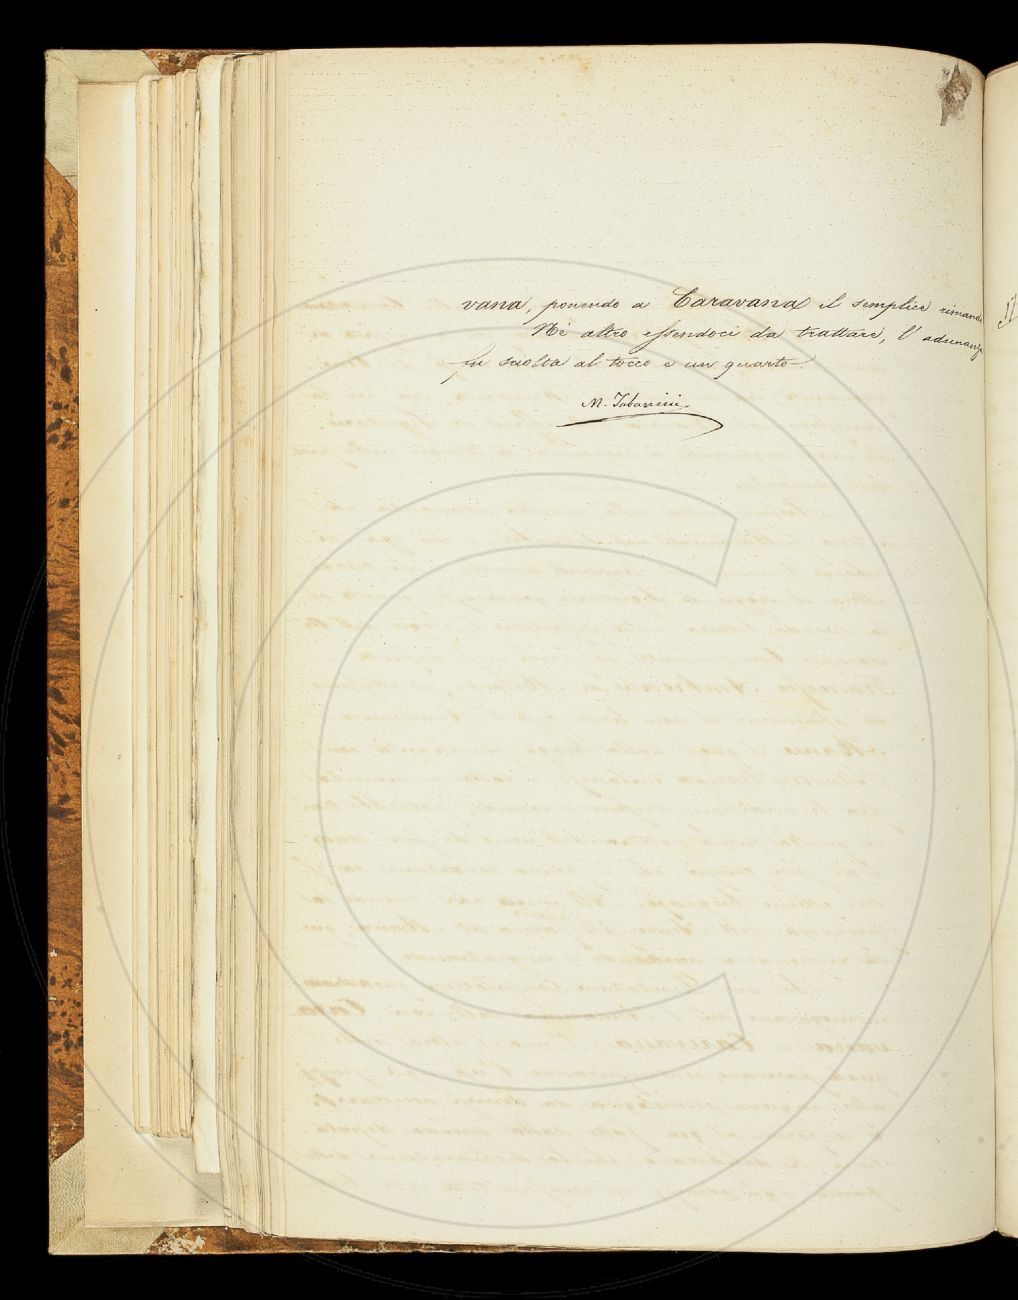 vana, ponendo a Caravana il semplice rimando
Nè altro essendoci da trattare, l'adunanza
fu sciolta al tocco e un quarto.
M. Tabarrini